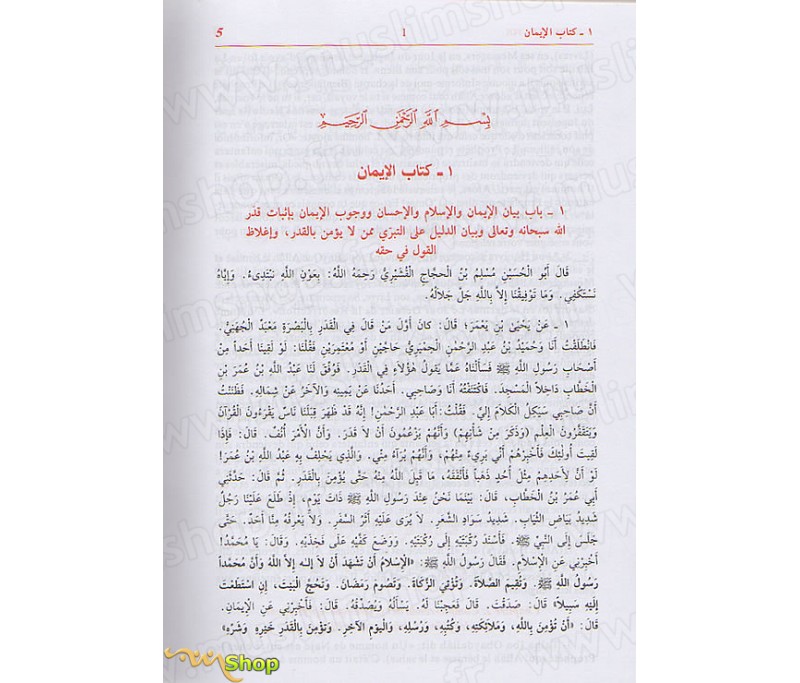 ١ ـ كتاب الإيمان 1 5
بِسْمِ اللَّهِ الرَّحْمَٰنِ الرَّحِيمِ
١ ـ كتاب الإيمان
١ ـ باب بيان الإيمان والإسلام والإحسان ووجوب الإيمان بإثبات قدر
الله سبحانه وتعالى وبيان الدليل على التبرّي ممن لا يؤمن بالقدر، وإغلاظ
القول في حقه
قَالَ أَبُو الْحُسَيْنِ مُسْلِمُ بْنُ الْحَجَّاجِ الْقُشَيْرِيُّ رَحِمَهُ اللَّهُ: بِعَوْنِ اللَّهِ نَبْتَدِىءُ. وَإِيَّاهُ
نَسْتَكْفِي. وَمَا تَوْفِيقُنَا إِلاَّ بِاللَّهِ جَلَّ جَلاَلُهُ.
١ ـ عَنْ يَحْيَىٰ بْنِ يَعْمَرَ؛ قَالَ: كَانَ أَوَّلَ مَنْ قَالَ فِي الْقَدَرِ بِالْبَصْرَةِ مَعْبَدٌ الْجُهَنِيُّ.
فَانْطَلَقْتُ أَنَا وَحُمَيْدُ بْنُ عَبْدِ الرَّحْمٰنِ الْحِمْيَرِيُّ حَاجَّيْنِ أَوْ مُعْتَمِرَيْنِ فَقُلْنَا: لَوْ لَقِينَا أَحَداً مِنْ
أَصْحَابِ رَسُولِ اللَّهِ ﷺ فَسَأَلْنَاهُ عَمَّا يَقُولُ هٰؤُلاَءِ فِي الْقَدَرِ. فَوُفِّقَ لَنَا عَبْدُ اللَّهِ بْنُ عُمَرَ بْنِ
الْخَطَّابِ دَاخِلاً الْمَسْجِدَ. فَاكْتَنَفْتُهُ أَنَا وَصَاحِبِي. أَحَدُنَا عَنْ يَمِينِهِ وَالآخَرُ عَنْ شِمَالِهِ. فَظَنَنْتُ
أَنَّ صَاحِبِي سَيَكِلُ الْكَلاَمَ إِلَيَّ. فَقُلْتُ: أَبَا عَبْدِ الرَّحْمٰنِ! إِنَّهُ قَدْ ظَهَرَ قِبَلَنَا نَاسٌ يَقْرَءُونَ الْقُرْآنَ
وَيَتَقَفَّرُونَ الْعِلْمَ (وَذَكَرَ مِنْ شَأْنِهِمْ) وَأَنَّهُمْ يَزْعُمُونَ أَنْ لاَ قَدَرَ. وَأَنَّ الأَمْرَ أُنُفٌ. قَالَ: فَإِذَا
لَقِيتَ أُولٰئِكَ فَأَخْبِرْهُمْ أَنِّي بَرِيءٌ مِنْهُمْ، وَأَنَّهُمْ بُرَآءُ مِنِّي. وَالَّذِي يَحْلِفُ بِهِ عَبْدُ اللَّهِ بْنُ عُمَرَ!
لَوْ أَنَّ لأَحَدِهِمْ مِثْلَ أُحُدٍ ذَهَباً فَأَنْفَقَهُ، مَا قَبِلَ اللَّهُ مِنْهُ حَتَّى يُؤْمِنَ بِالْقَدَرِ. ثُمَّ قَالَ: حَدَّثَنِي
أَبِي عُمَرُ بْنُ الْخَطَّابِ، قَالَ: بَيْنَمَا نَحْنُ عِنْدَ رَسُولِ اللَّهِ ﷺ ذَاتَ يَوْمٍ، إِذْ طَلَعَ عَلَيْنَا رَجُلٌ
شَدِيدُ بَيَاضِ الثِّيَابِ. شَدِيدُ سَوَادِ الشَّعَرِ. لاَ يُرَى عَلَيْهِ أَثَرُ السَّفَرِ. وَلاَ يَعْرِفُهُ مِنَّا أَحَدٌ. حَتَّى
جَلَسَ إِلَى النَّبِيِّ ﷺ. فَأَسْنَدَ رُكْبَتَيْهِ إِلَى رُكْبَتَيْهِ. وَوَضَعَ كَفَّيْهِ عَلَى فَخِذَيْهِ. وَقَالَ: يَا مُحَمَّدُ!
أَخْبِرْنِي عَنِ الإِسْلاَمِ. فَقَالَ رَسُولُ اللَّهِ ﷺ: «الإِسْلاَمُ أَنْ تَشْهَدَ أَنْ لاَ إِلٰهَ إِلاَّ اللَّهُ وَأَنَّ مُحَمَّداً
رَسُولُ اللَّهِ ﷺ. وَتُقِيمَ الصَّلاَةَ. وَتُؤْتِيَ الزَّكَاةَ. وَتَصُومَ رَمَضَانَ. وَتَحُجَّ الْبَيْتَ، إِنِ اسْتَطَعْتَ
إِلَيْهِ سَبِيلاً» قَالَ: صَدَقْتَ. قَالَ فَعَجِبْنَا لَهُ. يَسْأَلُهُ وَيُصَدِّقُهُ. قَالَ: فَأَخْبِرْنِي عَنِ الإِيمَانِ.
قَالَ: «أَنْ تُؤْمِنَ بِاللَّهِ، وَمَلاَئِكَتِهِ، وَكُتُبِهِ، وَرُسُلِهِ، وَالْيَوْمِ الآخِرِ. وَتُؤْمِنَ بِالْقَدَرِ خَيْرِهِ وَشَرِّهِ»
Shop
www.muslimshop.fr